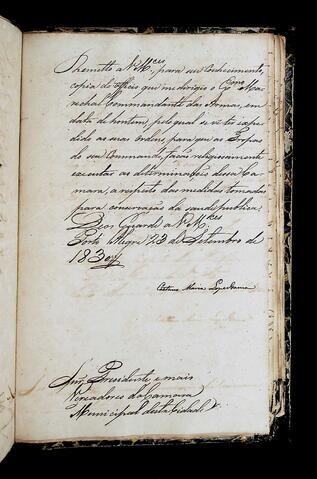 Remetto a V. M.ces, para seu conhecimento,
copia do officio que me dirigio o Ex.mo Ma-
rechal Commandante das Armas, em
data de hontem, pelo qual se vê ter expe-
dido as suas ordens, para que as Tropas
do seu Commando, fação religiosamente
executar as determinações dessa Ca-
mara, a respeito das medidas tomadas
para conservação da saude publica.
Deos Guarde a V. M.ces
Porto Alegre 23 de Setembro de
1830
Caetano Maria Lopes Gama
Snr.s Presidente e mais
Vereadores da Camara
Municipal desta Cidade